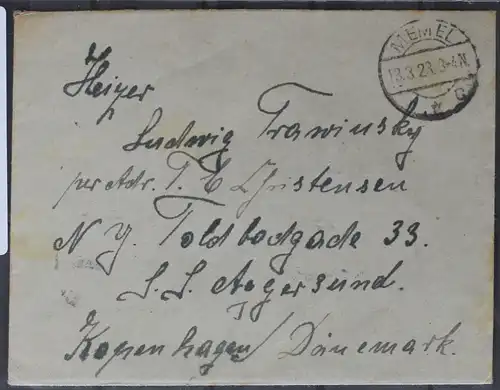 MEMEL
13.3.23. 3-4 N.
* C
Heizer
Ludwig Trawinsky
per Adr. T. C Christensen
N Y. Toldbodgade 33.
S. S. Aegersund.
Kopenhagen / Dänemark.